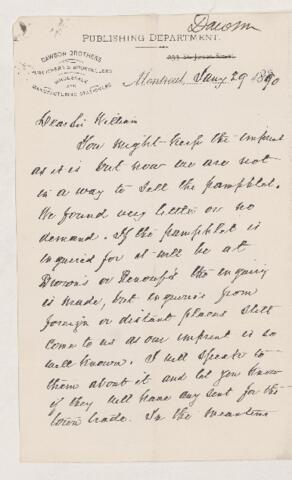 Dawson
PUBLISHING DEPARTMENT.
DAWSON BROTHERS
PUBLISHERS & BOOKSELLERS
WHOLESALE
AND
MANUFACTURING STATIONERS
Montreal, Jany 29 1890
Dear Sir William
You might keep the imprint
as it is but now we are not
in a way to sell the pamphlet.
We found very little or no
demand. If the pamphlet is
enquired for it will be at
or Renouf's the enquiry
is made, but enquiries from
foreign or distant places still
come to us as our imprint is so
well known. I will speak to
them about it and let you know
if they will have any sent for the
town trade. In the meantime